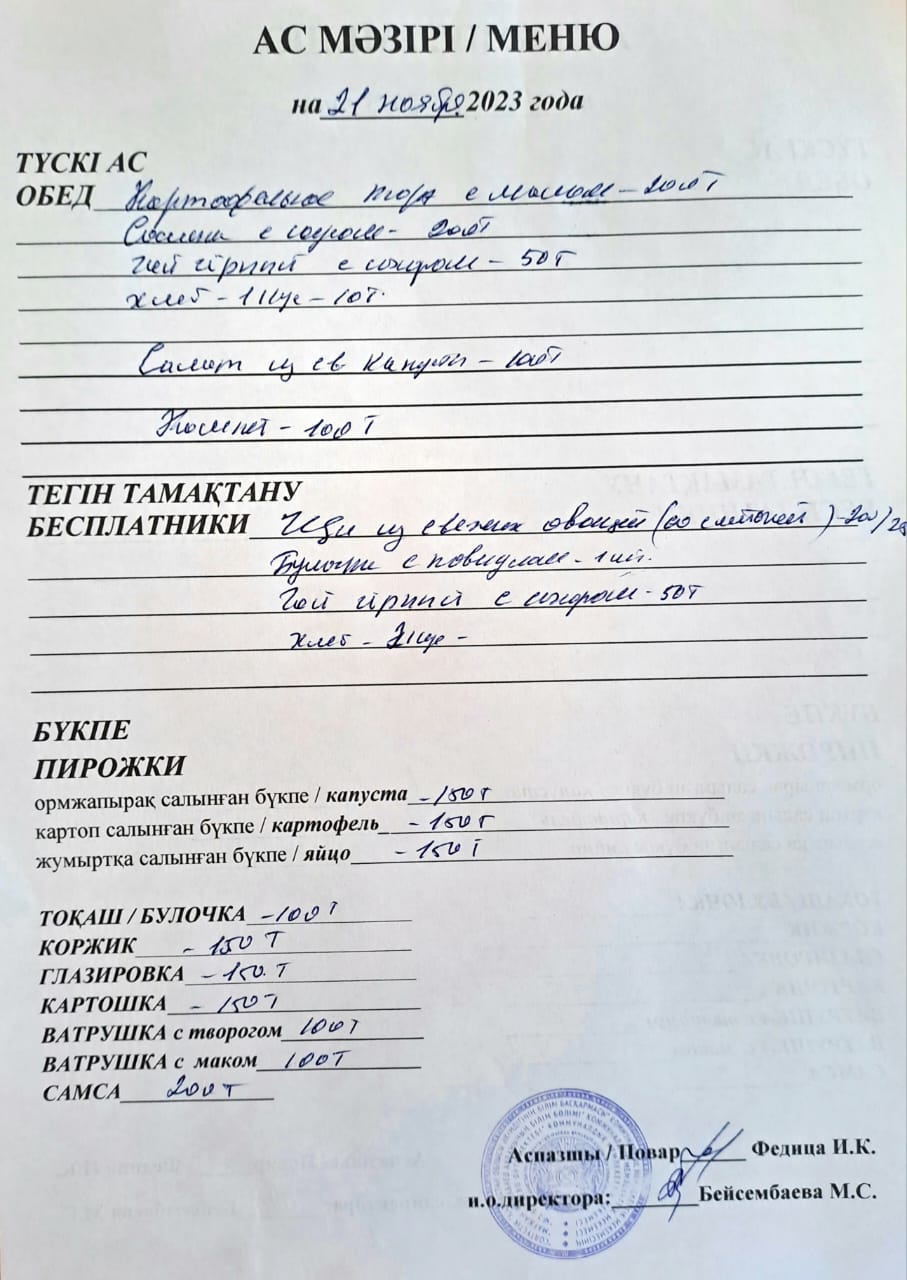 АС МӘЗІРІ / МЕНЮ
на 21 ноября 2023 года
ТҮСКІ АС
ОБЕД Картофельное пюре с маслом - 200 Т
с - 200 Т
Чай с сахаром - 50 Т
Хлеб - 1 кус - 10 Т.
Салат из св капусты - 100 Т
Компот - 100 Т
ТЕГІН ТАМАҚТАНУ
БЕСПЛАТНИКИ Щи из свежих овощей (со сметаной)
Булочка с повидлом - 1 шт.
Чай с сахаром - 50 Т
Хлеб - кус -
БҮКПЕ
ПИРОЖКИ
ормжапырақ салынған бүкпе / капуста - 150 Т
картоп салынған бүкпе / картофель - 150 Т
жумыртқа салынған бүкпе / яйцо - 150 Т
ТОҚАШ / БУЛОЧКА - 100 Т
КОРЖИК - 150 Т
ГЛАЗИРОВКА - 150. Т
КАРТОШКА - 150 Т
ВАТРУШКА с творогом 100 Т
ВАТРУШКА с маком 100 Т
САМСА 200 Т
Аспазшы / Повар Федица И.К.
и.о.директора: Бейсембаева М.С.